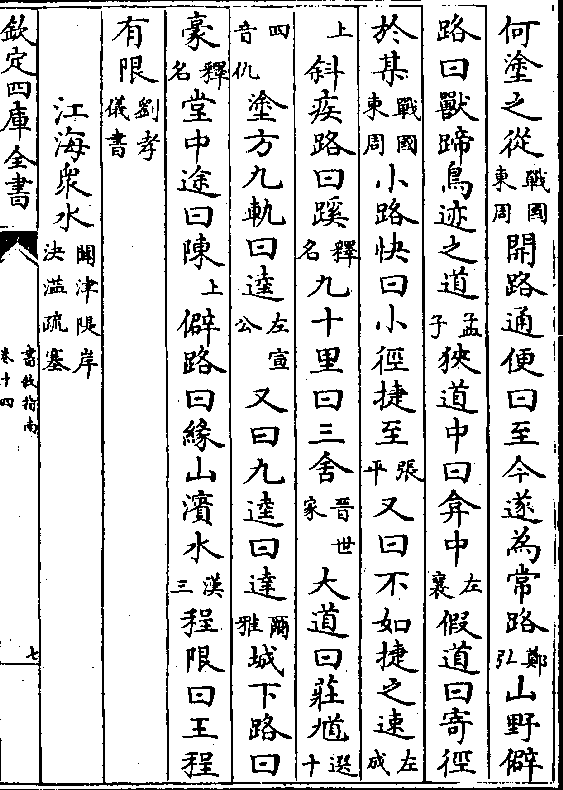 何塗之從戰國東周開路通便曰至今遂為常路鄭弘山野僻
路曰獸蹄鳥迹之道孟子狹道中曰弇中左襄假道曰寄徑
於某戰國東周小路快曰小徑捷至張平又曰不如捷之速左成
上斜疾路曰蹊釋名九十里曰三舍晉世家大道曰莊馗選十
四音仇塗方九軌曰逵左宣公又曰九逵曰達爾雅城下路曰
豪釋名堂中途曰陳上僻路曰緣山濱水漢三程限曰王程
有限劉孝儀書
江海衆水關津隄岸決溢疏塞
欽定四庫全書
書敘指南
卷十四
七